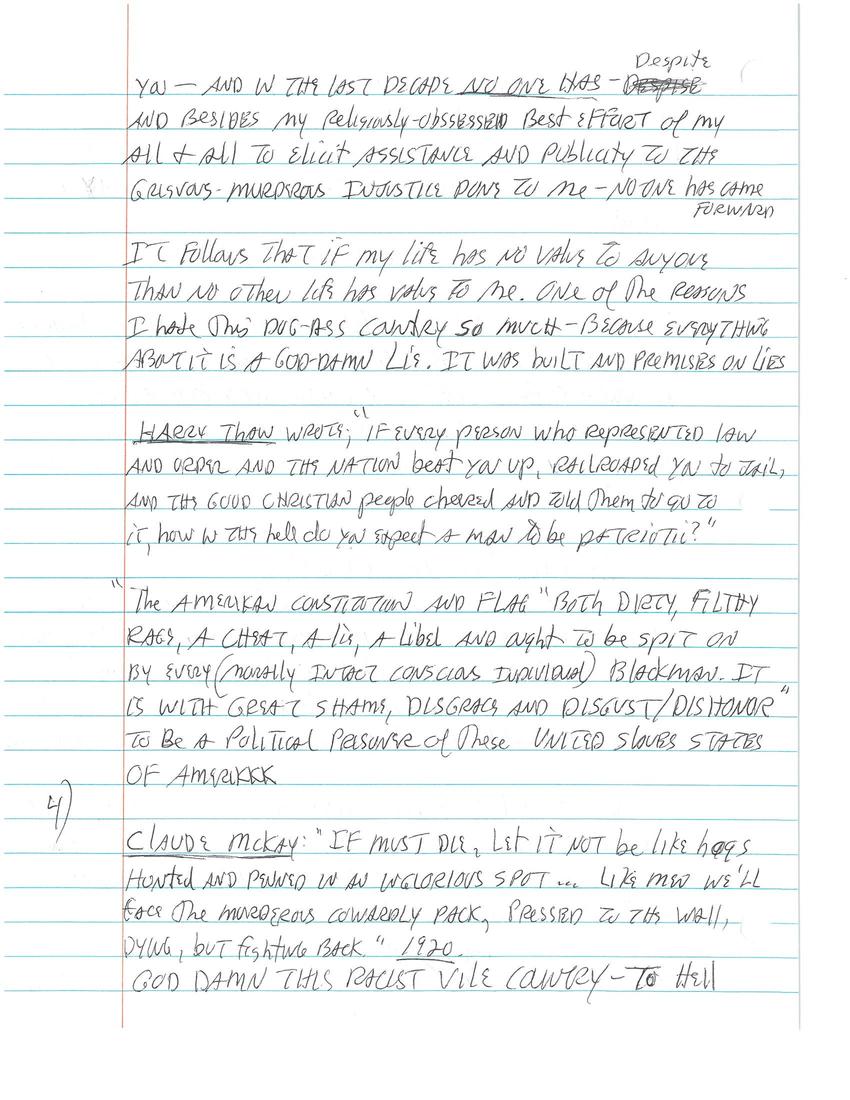 Despite
You — AND IN THE LAST DECADE NO ONE HAS -
AND BESIDES my Religiously-obssessed Best EFFORT of my
All & All TO Elicit ASSISTANCE AND Publicity TO THE
Grievous- MURDEROUS INJUSTICE DONE TO me - NO ONE has came
FORWARD
It Follows That iF my life has NO value To ANYONE
THAN NO other life has value To me. ONE of The REASONS
I hate This DOG-ASS COUNTRY so much - Because EVERYTHING
ABOUT iT iS A GOD-DAMN Lie. IT WAS built AND PREMISES ON LiES
HARRY THAW WROTE; "IF EVERY PERSON who REPRESENTED law
AND ORDER AND THE NATION beat you up, RAILROADED YOU to JAIL,
AND THE GOOD CHRISTIAN people cheered AND told Them to go to
it, how IN THE hell do you expect A man to be PATRIOTIC?"
"The AMERIKAN CONSTITUTION AND FLAG "BOTH DIRTY, FILTHY
RAGS, A CHEAT, A lie, A libel AND ought to be spit ON
BY EVERY (morally INTACT CONSCIOUS INDIVIDUAL) Blackman. IT
IS WITH GREAT SHAME, DISGRACE AND DISGUST/DISHONOR"
To Be A Political PRISONER of These UNITED Slaves STATES
OF AMERIKKK
4)
Claude McKay: "IF MUST DIE, Let iT NOT be like hogs
HUNTED AND PENNED IN AN INGLORIOUS SPOT... LIKE MEN WE'LL
face The MURDEROUS COWARDLY PACK, PRESSED TO THE Wall,
DYING, but fighting BACK." 1920.
GOD DAMN THIS RACIST VILE COUNTRY - TO HELL